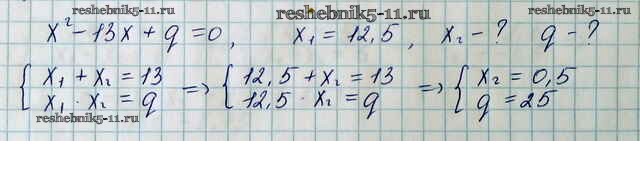 reshebnik5-11.ru reshebnik5-11.ru reshebnik5-11.ru
x² - 13x + q = 0, x₁ = 12,5, x₂ - ? q - ?
{ x₁ + x₂ = 13 => { 12,5 + x₂ = 13 => { x₂ = 0,5
x₁ · x₂ = q 12,5 · x₂ = q q = 25
reshebnik5-11.ru